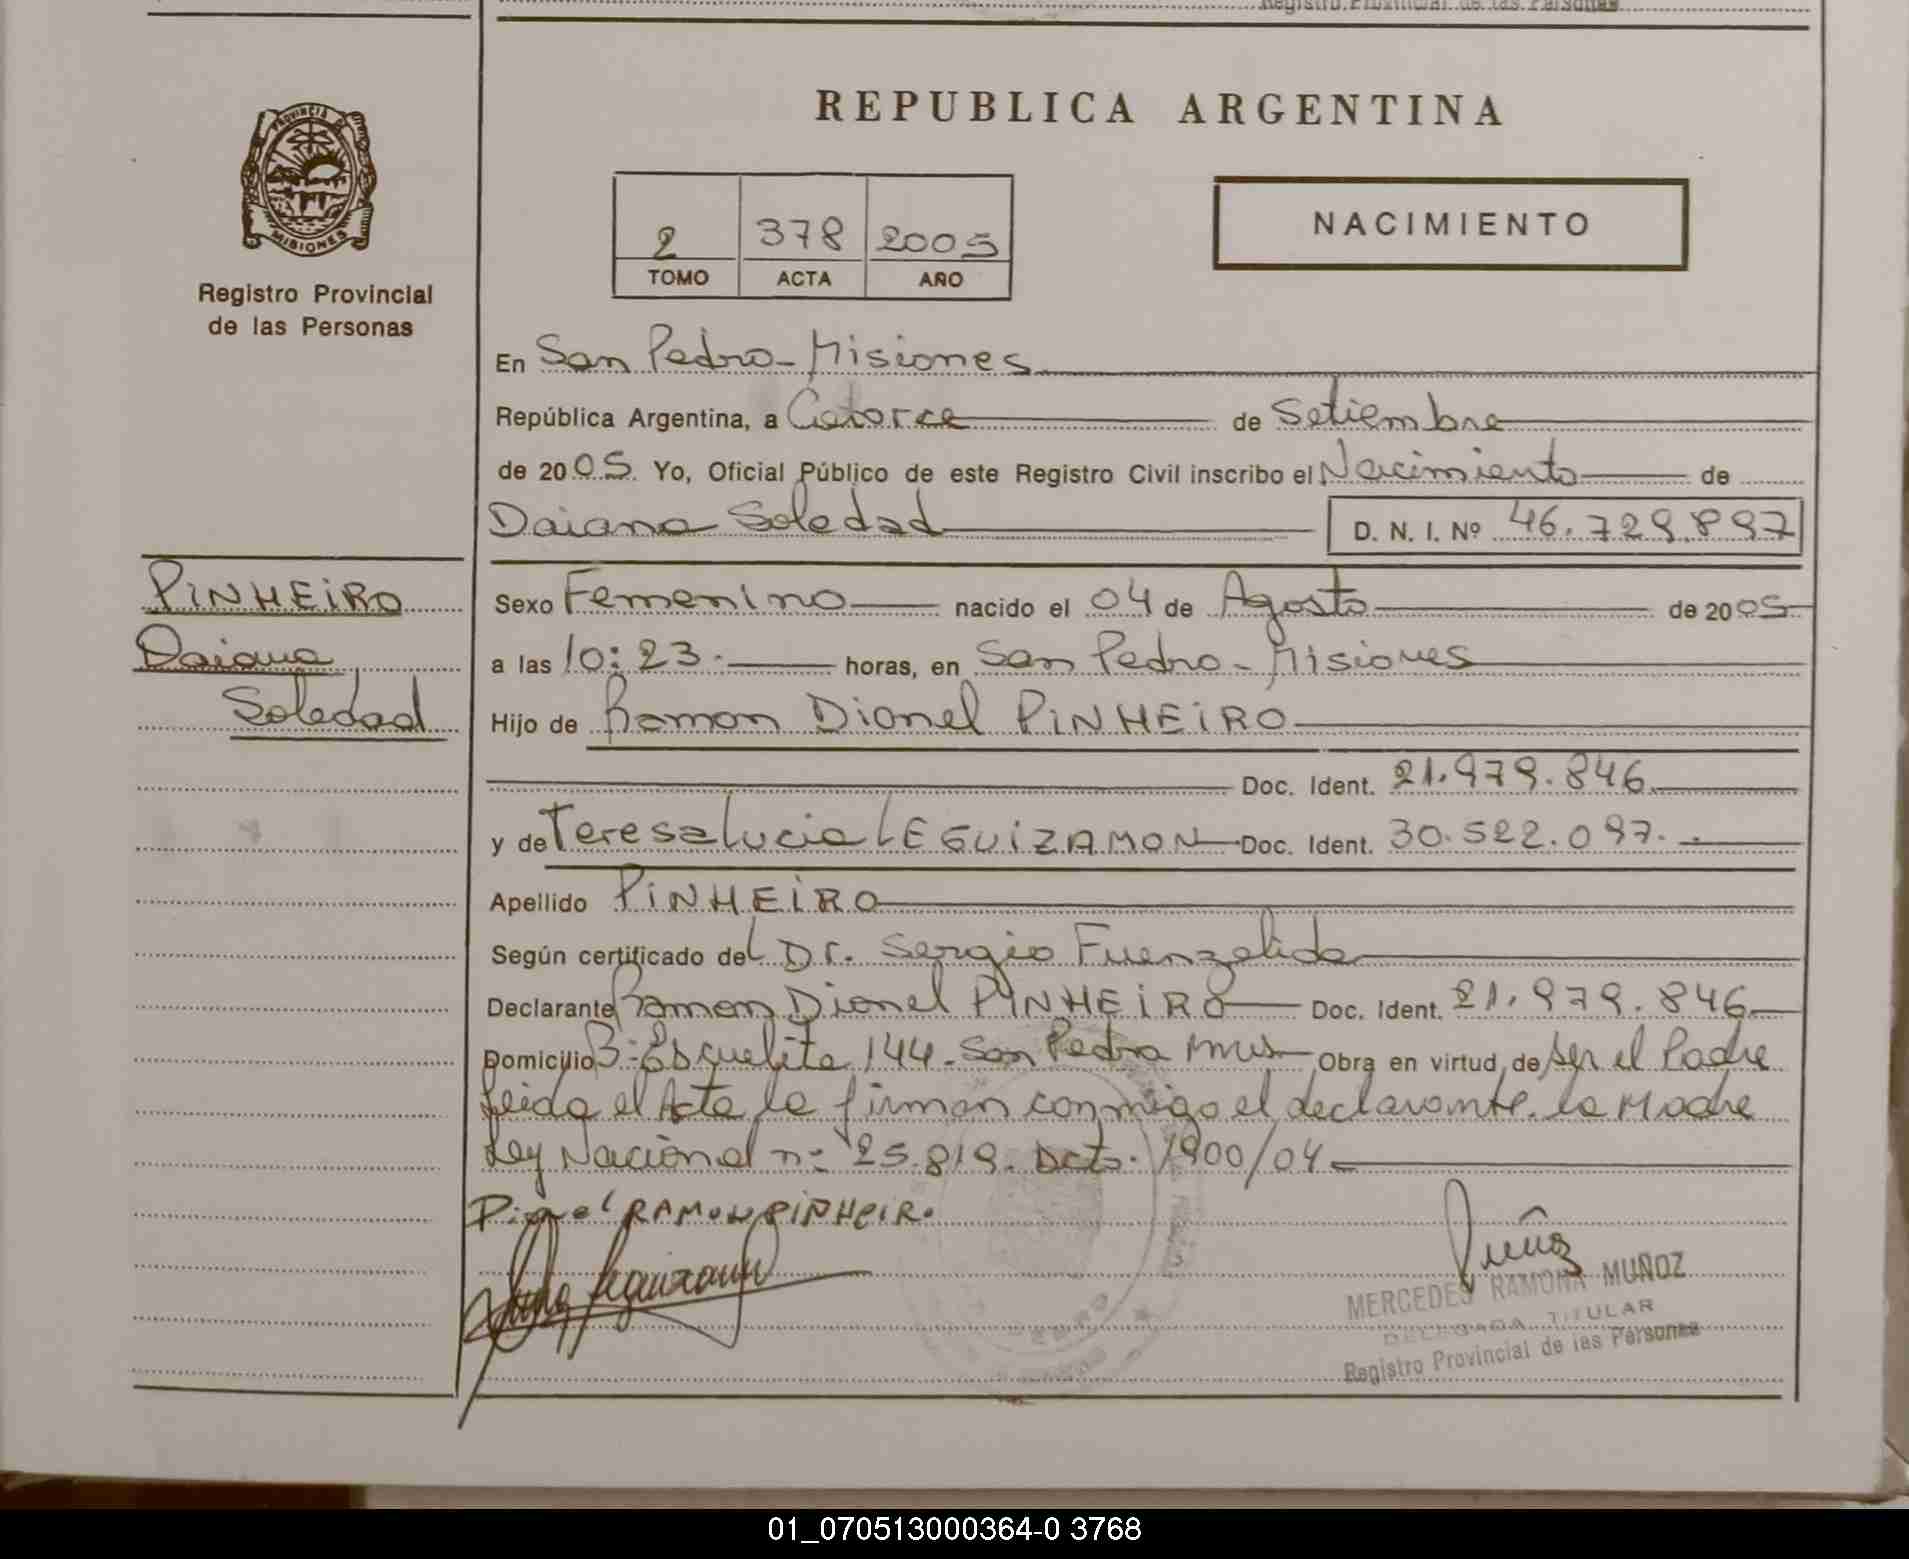 Registro Provincial de las Personas
REPUBLICA ARGENTINA
PROVINCIA DE
MISIONES
Registro Provincial
de las Personas
2 378 2005
TOMO ACTA AÑO
NACIMIENTO
En San Pedro - Misiones
República Argentina, a Catorce de Setiembre
de 2005. Yo, Oficial Público de este Registro Civil inscribo el Nacimiento de
Daiana Soledad D. N. I. Nº 46.729.897
PINHEIRO
Daiana
Soledad
Sexo Femenino nacido el 04 de Agosto de 2005
a las 10:23. horas, en San Pedro - Misiones
Hijo de Ramon Dionel PINHEIRO
Doc. Ident. 21.979.846
y de Teresa Lucia LEGUIZAMON Doc. Ident. 30.522.097.
Apellido PINHEIRO
Según certificado del Dr. Sergio Fuenzalida
Declarante Ramon Dionel PINHEIRO Doc. Ident. 21.979.846
Domicilio Bº Esquelita 144 - San Pedro Mnes Obra en virtud de ser el Padre
leida el Acta la firman conmigo el declarante. la Madre
Ley Nacional nº 25.819. Dcto. 1900/04
Dionel RAMON PINHEIR.
Leguizamon
Muñoz
MERCEDES RAMONA MUÑOZ
DELEGADA TITULAR
Registro Provincial de las Personas
01_070513000364-0 3768